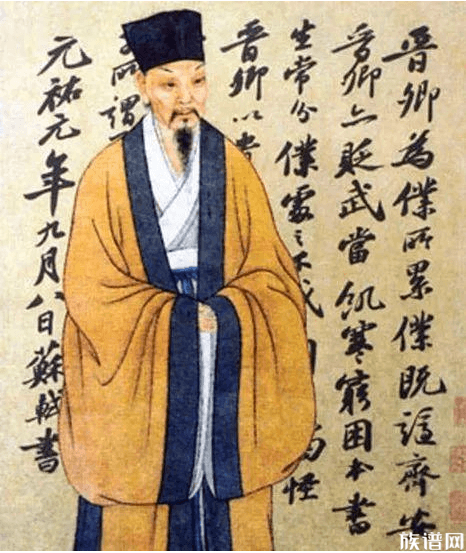 晉卿為僕所累僕既謫齊安
晉卿亦貶武當飢寒窮困本書
生常分僕處之不戚 怪
晉卿以貴
所謂
元祐元年九月八日蘇軾書
族谱网